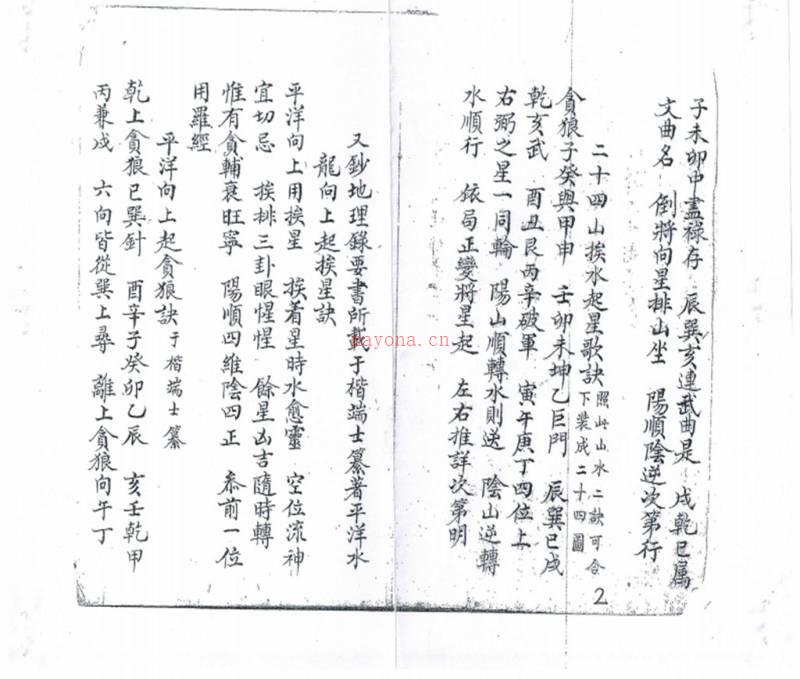 子未卯申盡祿存　辰巽亥連武曲是　戌乾巳屬
文曲名　倒將向星排山坐　陽順陰逆次第行
二十四山挨水起星歌訣 照此山水二訣可合下裝成二十四圖
貪狼子癸與甲申　壬卯未坤乙巨門　辰巽巳戌
乾亥武　酉丑艮丙辛破軍　寅午庚丁四位上
右弼之星一同輪　陽山順轉水則逆　陰山逆轉
水順行　依局正變將星起　左右推詳次第明
2
又鈔地理錄要書所載于楷端士纂著平洋水
龍向上起挨星訣
平洋向上用挨星　挨着星時水愈靈　空位流神
宜切忌　挨排三卦眼惺惺　餘星凶吉隨時轉
惟有貪輔衰旺寧　陽順四維陰四正　叅前一位
用羅經
平洋向上起貪狼訣 于楷端士纂
乾上貪狼巳巽針　酉辛子癸卯乙辰　亥壬乾甲
丙兼戌　六向皆從巽上尋　離上貪狼向午丁
nayona.cn